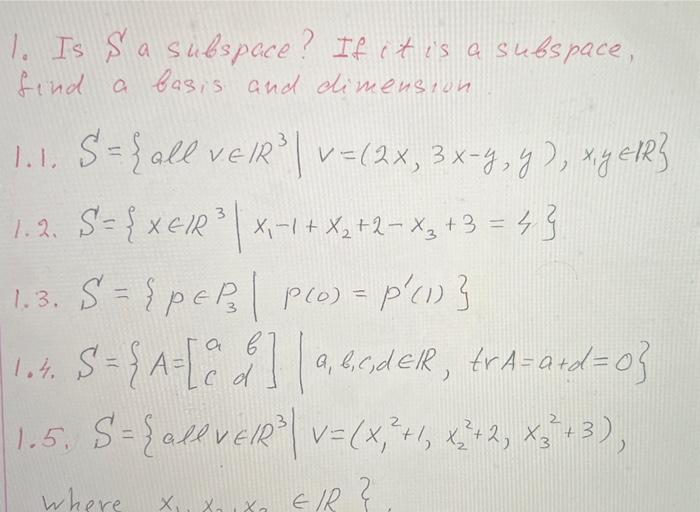 1. Is S a subspace? If it is a subspace,
find a basis and dimension
1.1. S={all v∈ℝ³| v=(2x, 3x-y, y), x,y∈ℝ}
1.2. S={x∈ℝ³| x₁-1+x₂+2-x₃+3=4}
1.3. S={p∈P₃| p(0)=p'(1)}
1.4. S={A=[a b
c d] | a,b,c,d∈ℝ, trA=a+d=0}
1.5. S={all v∈ℝ³| v=(x₁²+1, x₂²+2, x₃²+3),
where x₁, x₂, x₃ ∈ℝ}.